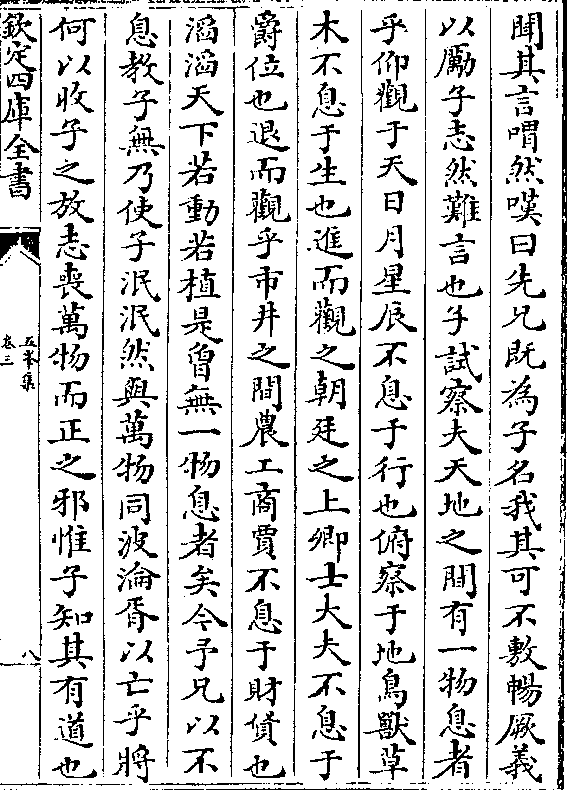 聞其言喟然嘆曰先兄既為子名我其可不敷暢厥義
以勵子志然難言也子試察夫天地之間有一物息者
乎仰觀于天日月星辰不息于行也俯察于地鳥獸草
木不息于生也進而觀之朝廷之上卿士大夫不息于
爵位也退而觀乎市井之間農工商賈不息于財貨也
滔滔天下若動若植是曾無一物息者矣今予兄以不
息教子無乃使子泯泯然與萬物同波淪胥以亡乎將
何以收子之放志喪萬物而正之邪惟子知其有道也
欽定四庫全書
五峯集
卷三
八